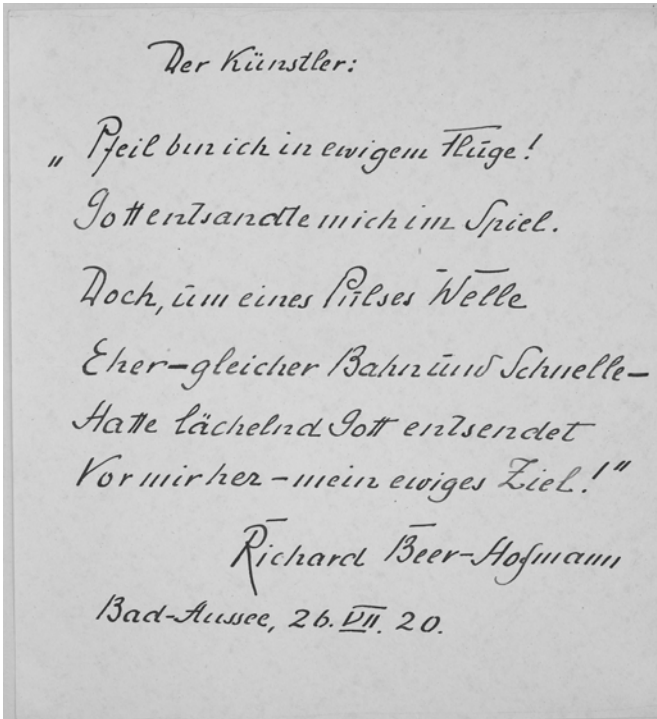 Der Künstler:
„Pfeil bin ich in ewigem Fluge!
Gott entsandte mich im Spiel.
Doch, um eines Pulses Welle
Eher – gleicher Bahn und Schnelle –
Hatte lächelnd Gott entsendet
Vor mir her – mein ewiges Ziel!"
Richard Beer-Hofmann
Bad-Aussee, 26. VII. 20.